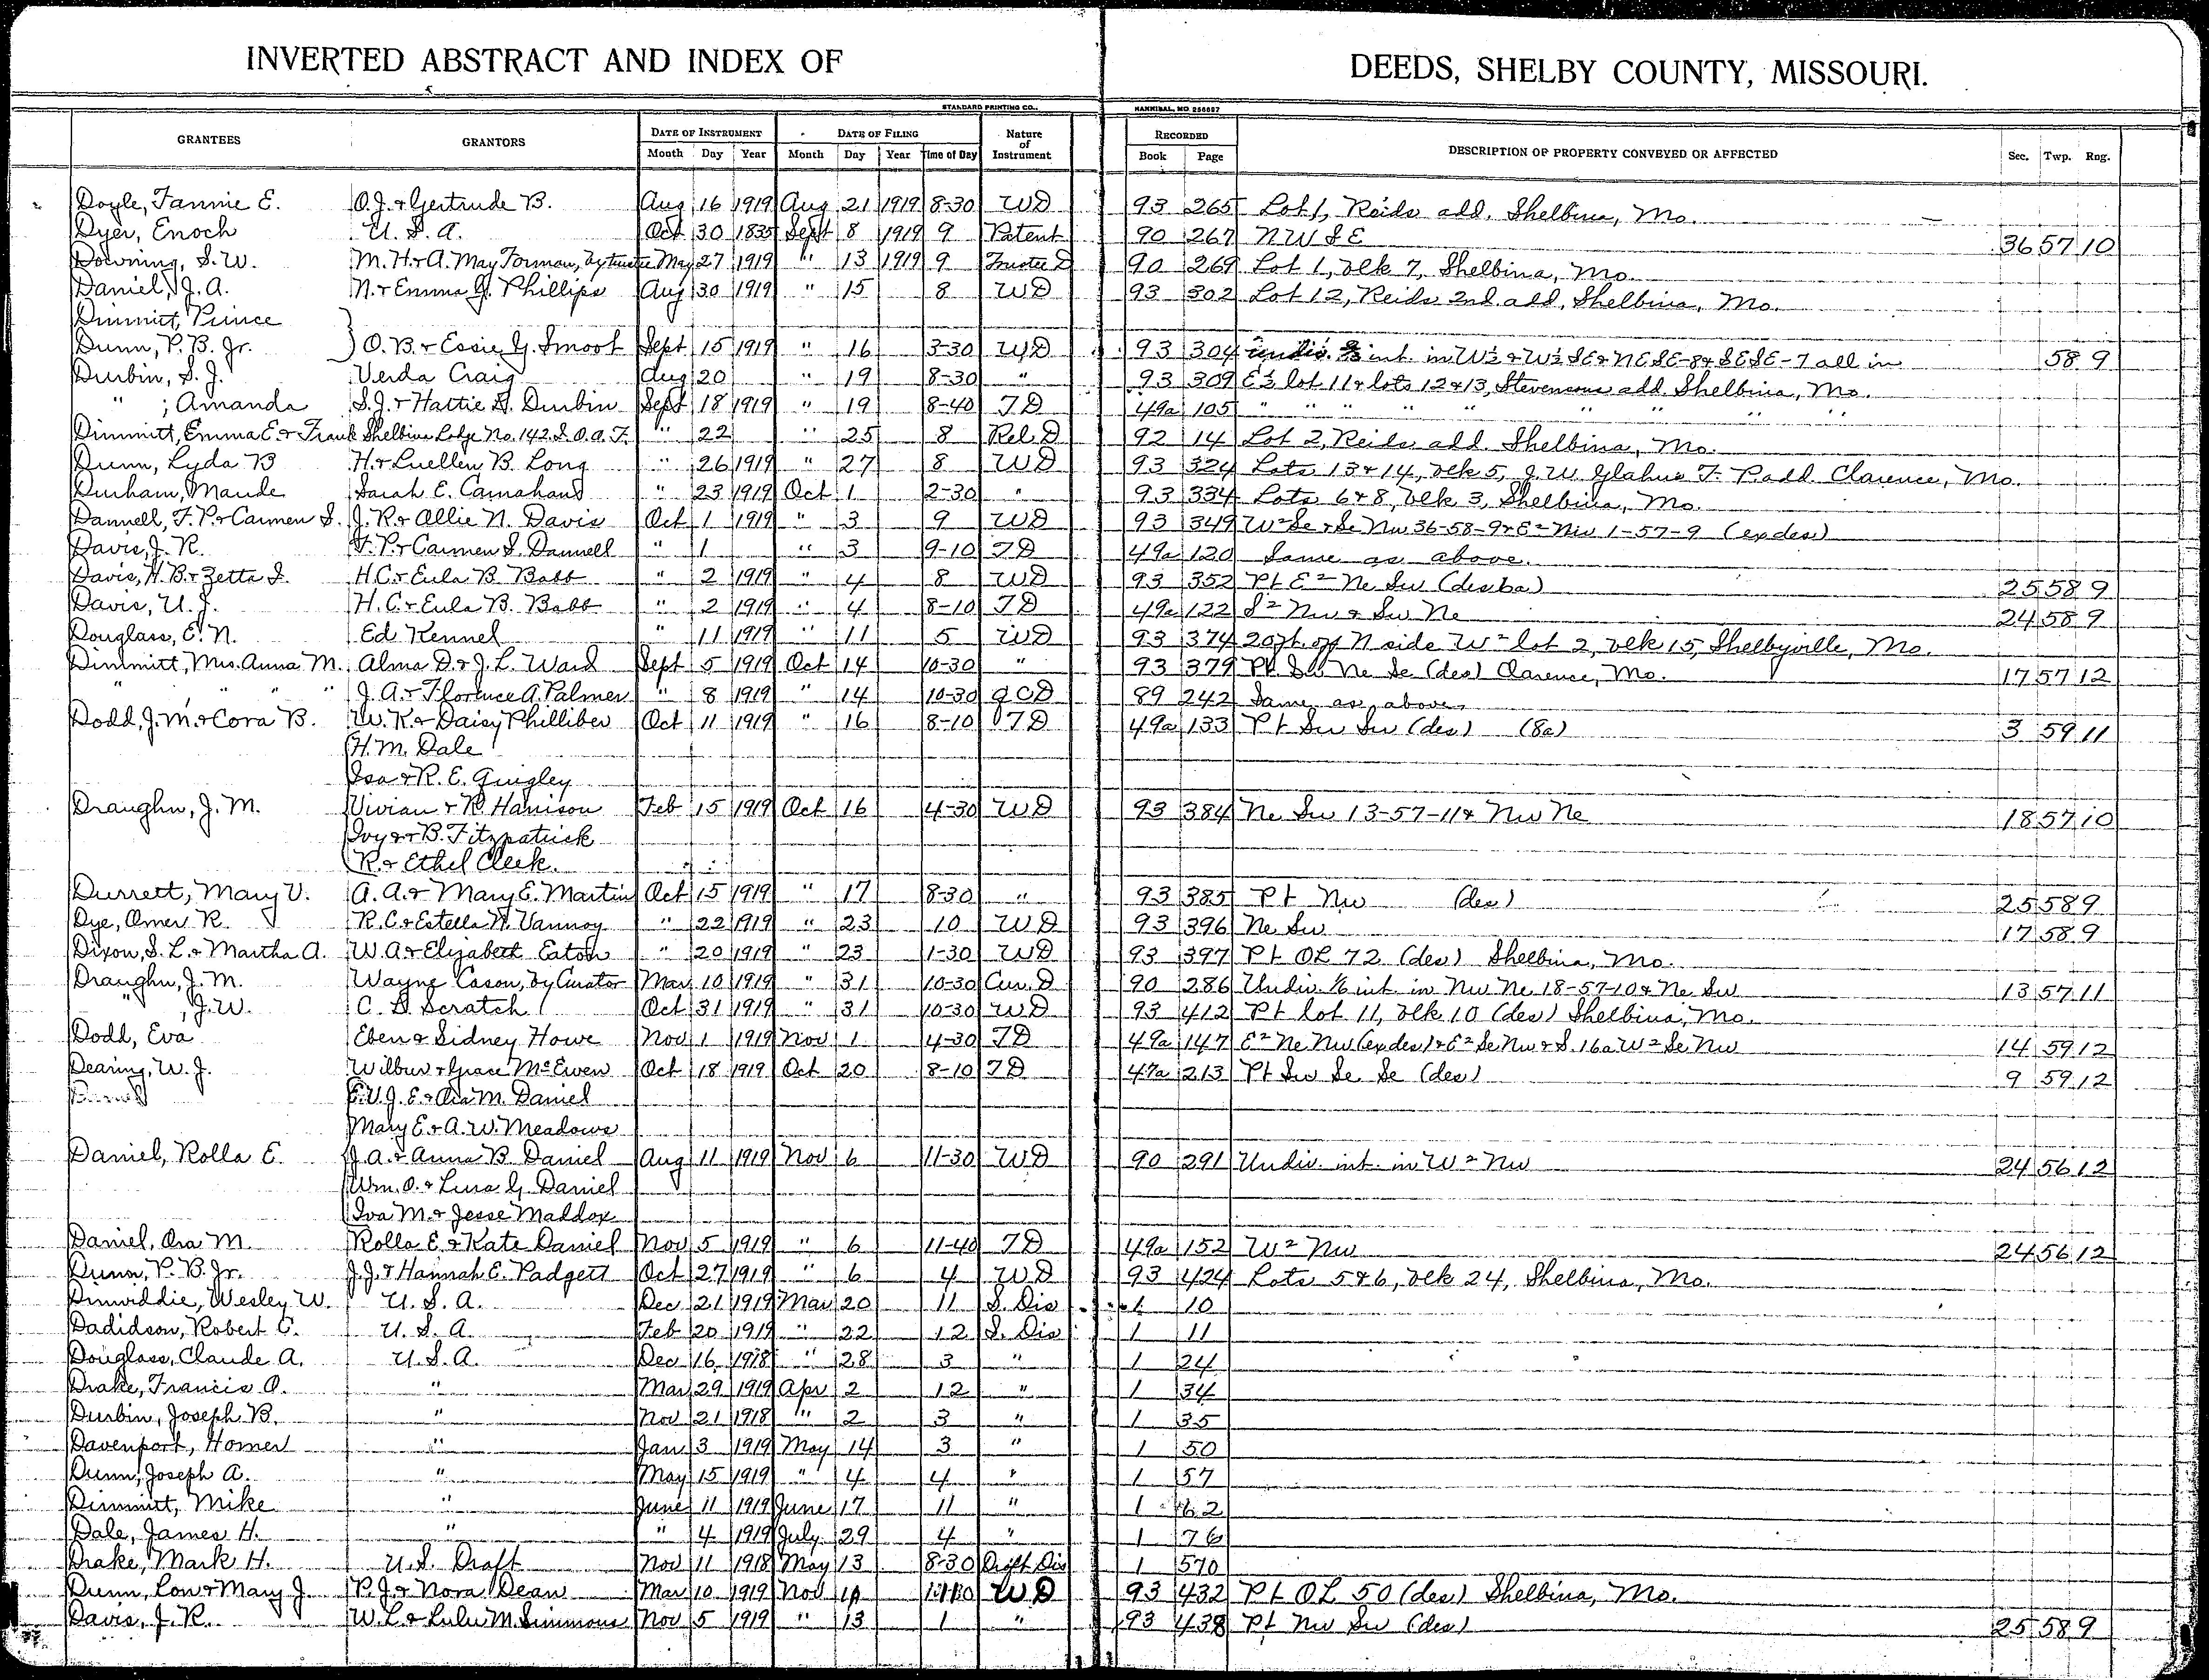 INVERTED ABSTRACT AND INDEX OF DEEDS, SHELBY COUNTY, MISSOURI.
STANDARD PRINTING CO., HANNIBAL, MO. 256697
GRANTEES GRANTORS DATE OF INSTRUMENT Month Day Year DATE OF FILING Month Day Year Time of Day Nature of Instrument RECORDED Book Page DESCRIPTION OF PROPERTY CONVEYED OR AFFECTED Sec. Twp. Rng.
Doyle, Fannie E. O.J. & Gertrude B. Aug 16 1919 Aug 21 1919 8-30 WD 93 265 Lot 1, Reids add. Shelbina, Mo.
Dyer, Enoch U.S.A. Oct 30 1835 Sept 8 1919 9 Patent 90 267 NW SE 36 57 10
Downing, S.W. M.H. & A. May Forman, by trustee May 27 1919 " 13 1919 9 Trustee D 90 269 Lot 1, blk 7, Shelbina, Mo.
Daniel, J.A. N. & Emma G. Phillips Aug 30 1919 " 15 8 WD 93 302 Lot 12, Reids 2nd add, Shelbina, Mo.
Dimmitt, Prince
Dunn, P.B. Jr. } O.B. & Essie G. Smoot Sept 15 1919 " 16 3-30 WD 93 304 undiv. int. in W½ & W½ SE & NESE-8 & SESE-7 all in 58 9
Durbin, S.J. Verda Craig Aug 20 " 19 8-30 " 93 309 E½ lot 11 & lots 12 & 13, Stevensons add. Shelbina, Mo.
" ; Amanda S.J. & Hattie D. Durbin Sept 18 1919 " 19 8-40 TD 49a 105 " " " " " " " " "
Dimmitt, Emma E. & Frank Shelbina Lodge No. 142 I.O.O.F. " 22 " 25 8 Rel D 92 14 Lot 2, Reids add. Shelbina, Mo.
Dunn, Lyda B H. & Luellen B. Long " 26 1919 " 27 8 WD 93 324 Lots 13 & 14, blk 5, J.W. Glahns F. P. add. Clarence, Mo.
Durham, Maude Sarah E. Carnahand " 23 1919 Oct 1 2-30 " 93 334 Lots 6 & 8, blk 3, Shelbina, Mo.
Dannell, F.P. & Carmen S. J.R. & Allie N. Davis Oct 1 1919 " 3 9 WD 93 349 W² Se & Se Nw 36-58-9 & E² Nw 1-57-9 (ex des)
Davis, J.R. F.P. & Carmen S. Dannell " 1 " 3 9-10 TD 49a 120 Same as above.
Davis, H.B. & Zetta I. H.C. & Eula B. Babb " 2 1919 " 4 8 WD 93 352 Pt E² Ne Sw (des ba) 25 58 9
Davis, U.J. H.C. & Eula B. Babb " 2 1919 " 4 8-10 TD 49a 122 S² Nw & Sw Ne 24 58 9
Douglass, E.N. Ed Kennel " 11 1919 " 11 5 WD 93 374 20 ft off N side W² lot 2, blk 15, Shelbyville, Mo.
Dimmitt, Mrs. Anna M. Alma D. & J.L. Ward Sept 5 1919 Oct 14 10-30 " 93 379 Pt Sw Ne Se (des) Clarence, Mo. 17 57 12
" " " " J.A. & Florence A. Palmer " 8 1919 " 14 10-30 QCD 89 242 Same as above.
Dodd, J.M. & Cora B. W.K. & Daisy Philliber Oct 11 1919 " 16 8-10 TD 49a 133 Pt Sw Sw (des) (8a) 3 59 11
H.M. Dale
Isa & R.E. Quigley
Draughn, J.M. Vivian & R. Harrison Feb 15 1919 Oct 16 4-30 WD 93 384 Ne Sw 13-57-11 & Nw Ne 18 57 10
Ivy & B. Fitzpatrick
R. & Ethel Cleek.
Durrett, Mary V. A.A. & Mary E. Martin Oct 15 1919 " 17 8-30 " 93 385 Pt Nw (des) 25 58 9
Dye, Omer R. R.C. & Estella N. Vannoy " 22 1919 " 23 10 WD 93 396 Ne Sw 17 58 9
Dixon, S.L. & Martha A. W.A. & Elizabeth Eaton " 20 1919 " 23 1-30 WD 93 397 Pt OL 72 (des) Shelbina, Mo.
Draughn, J.M. Wayne Cason, by Curator Mar 10 1919 " 31 10-30 Cur. D 90 286 Undiv. 1/6 int. in Nw Ne 18-57-10 & Ne Sw 13 57 11
" , J.W. C.D. Scratch Oct 31 1919 " 31 10-30 WD 93 412 Pt lot 11, blk 10 (des) Shelbina, Mo.
Dodd, Eva Eben & Sidney Howe Nov 1 1919 Nov 1 4-30 TD 49a 147 E² Ne Nw (ex des) & E² Se Nw & S. 16a W² Se Nw 14 59 12
Dearing, W.J. Wilbur & Grace McEwen Oct 18 1919 Oct 20 8-10 TD 47a 213 Pt Sw Se Se (des) 9 59 12
E.V.J.E. & Ora M. Daniel
Mary E. & A.W. Meadows
Daniel, Rolla E. J.A. & Anna B. Daniel Aug 11 1919 Nov 6 11-30 WD 90 291 Undiv. int. in W² Nw 24 56 12
Wm. O. & Lura G. Daniel
Iva M. & Jesse Maddox
Daniel, Ora M. Rolla E. & Kate Daniel Nov 5 1919 " 6 11-40 TD 49a 152 W² Nw 24 56 12
Dunn, P.B. Jr. J.J. & Hannah E. Padgett Oct 27 1919 " 6 4 WD 93 424 Lots 5 & 6, blk 24, Shelbina, Mo.
Dinwiddie, Wesley W. U.S.A. Dec 21 1919 Mar 20 11 S. Dis 1 10
Dadidson, Robert C. U.S.A. Feb 20 1919 " 22 12 S. Dis 1 11
Douglass, Claude A. U.S.A. Dec 16 1918 " 28 3 " 1 24
Drake, Francis O. " Mar 29 1919 Apr 2 12 " 1 34
Durbin, Joseph B. " Nov 21 1918 " 2 3 " 1 35
Davenport, Homer " Jan 3 1919 May 14 3 " 1 50
Dunn, Joseph A. " May 15 1919 " 4 4 " 1 57
Dimmitt, Mike " June 11 1919 June 17 11 " 1 62
Dale, James H. " " 4 1919 July 29 4 " 1 76
Drake, Mark H. U.S. Draft Nov 11 1918 May 13 8-30 Draft Dis 1 570
Dunn, Lon & Mary J. P.J. & Nora Dean Mar 10 1919 Nov WD 93 432 Pt OL 50 (des) Shelbina, Mo.
Davis, J.R. W.L. & Lulu M. Simmons Nov 5 1919 " 13 1 " 93 438 Pt Nw Sw (des) 25 58 9